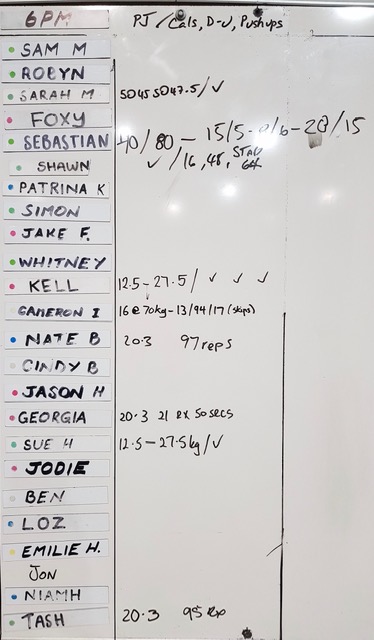 6PM PJ / Cals, D-U, Pushups
SAM M
ROBYN
SARAH M 50 45 50 47.5 / ✓
FOXY
SEBASTIAN 40 / 80 - 15/5 - - 28 / 15
SHAWN ✓ / 16, 48,
PATRINA K
SIMON
JAKE F.
WHITNEY
KELL 12.5 - 27.5 / ✓ ✓ ✓
CAMERON I 16 @ 70kg - 13/94/17 (skips)
NATE B 20.3 97 reps
CINDY B
JASON H
GEORGIA 20.3 21 RX 50 secs
SUE H 12.5 - 27.5kg / ✓
JODIE
BEN
LOZ
EMILIE H.
JON
NIAMH
TASH 20.3 95